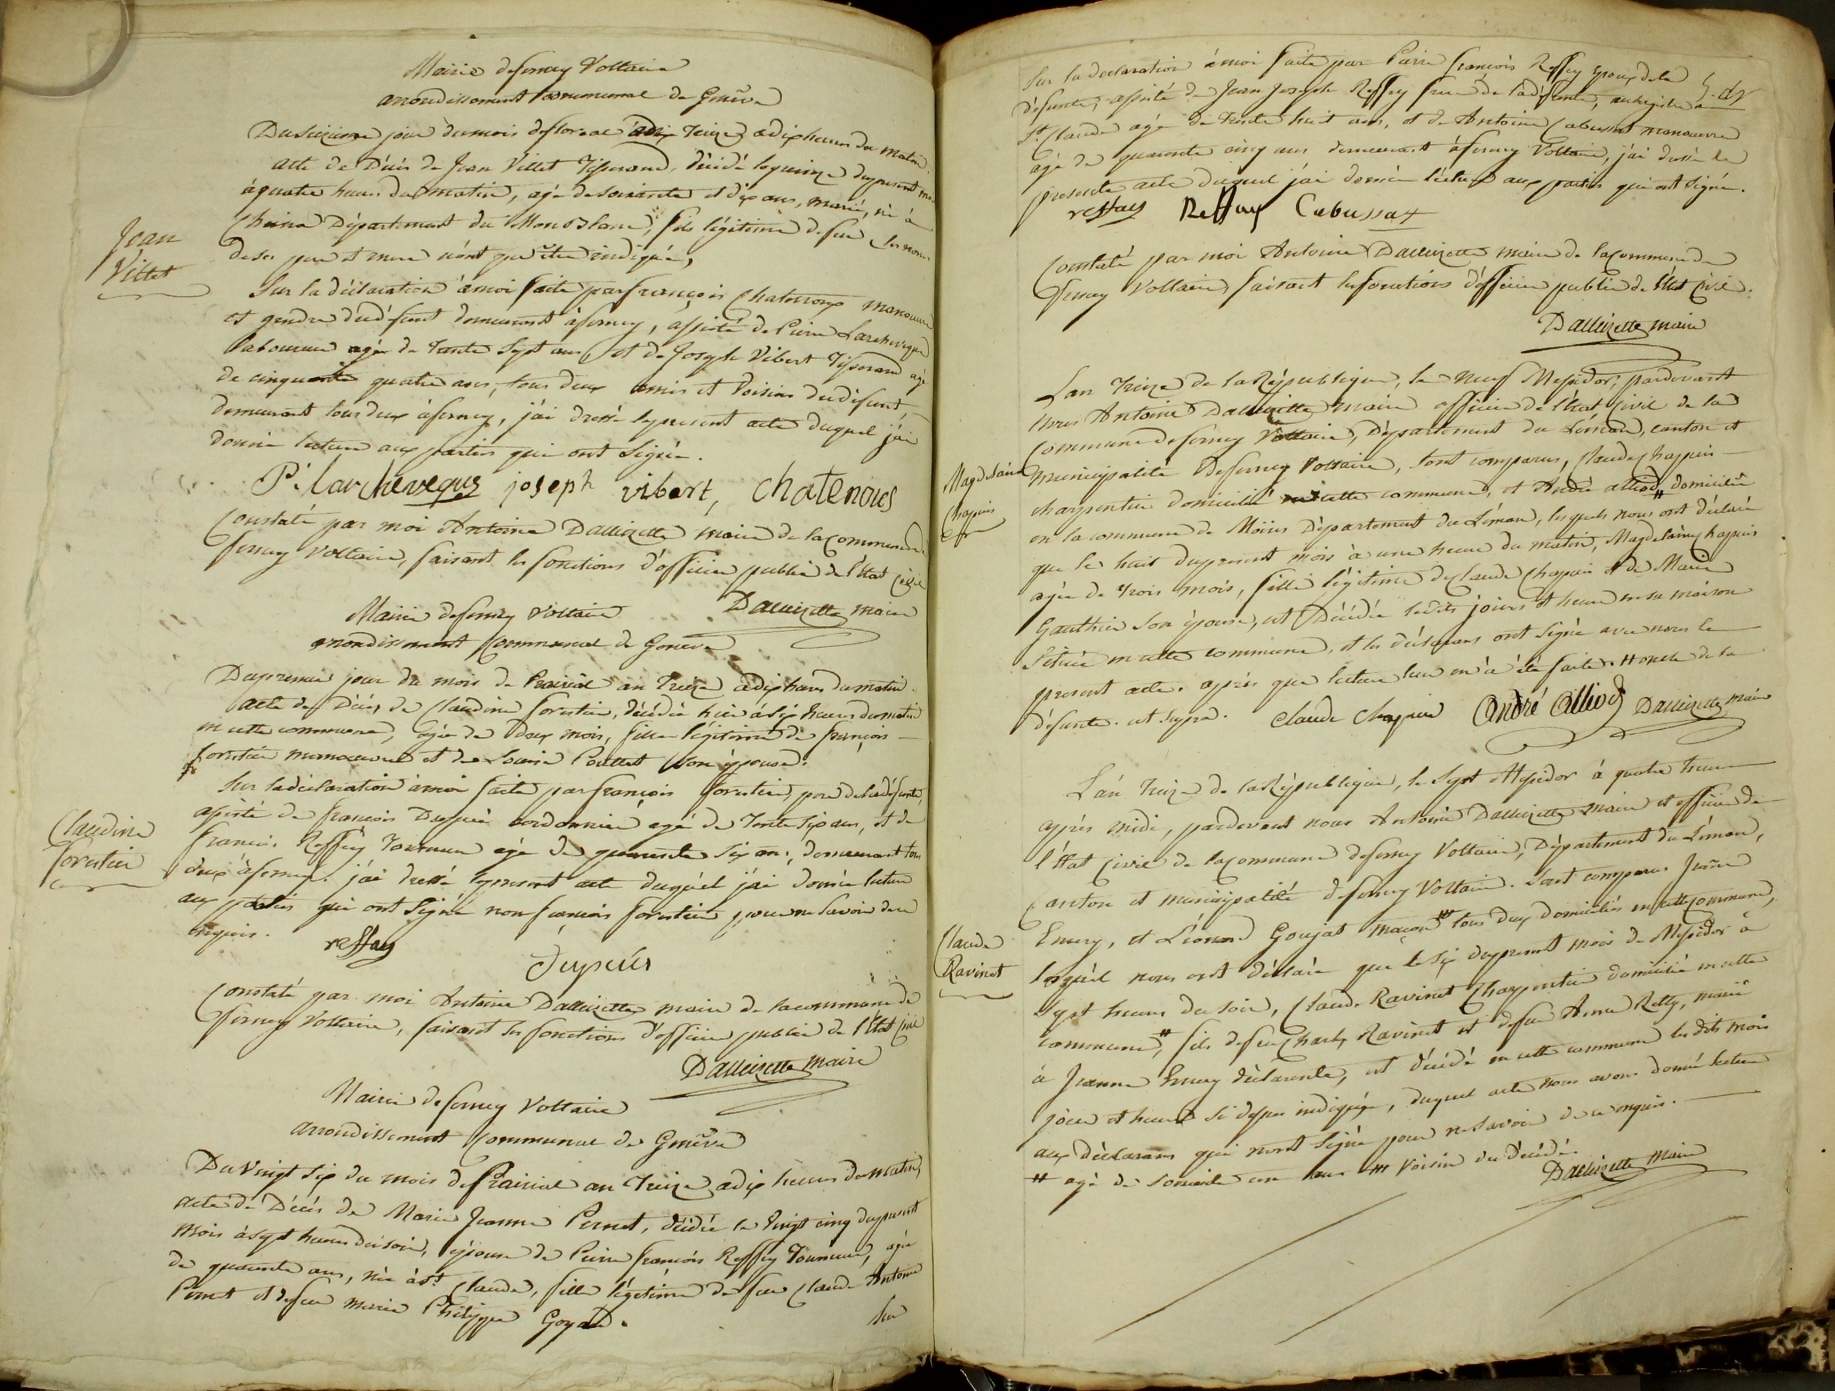 Mairie de ferney Voltaire
arrondissement communal de Genève
Du Seizieme jour du mois de floreal an Treize a dix heures du matin
acte de Décès de Jean Villet Tisserand, décédé le quinze du present mois
à quatre heures du matin, agé de soixante et dix ans, marié, né à
Département du Mont Blanc, fils légitime de feu les noms
de ses pere et mere n'ont pu être indiqué,
Jean
Villet
Sur la déclaration à moi faite par françois Chatenoux manouvrier
et gendre du défunt demeurant à ferney, assisté de Pierre Larcheveque
Laboureur agé de Trente Sept ans, et de Joseph Vibert Tisserand agé
de cinquante quatre ans, tous deux amis et Voisins du défunt,
demeurant tous deux à ferney, j'ai dressé le present acte duquel j'ai
donné lecture aux parties qui ont Signé.
P. larcheveque joseph vibert, chatenoues
Constaté par moi Antoine Dallizette maire de la commune de
ferney Voltaire, faisant les fonctions d'officier public de l'état Civil
Dallizette maire
Mairie de ferney Voltaire
arrondissement Communal de Genève
Du premier jour du mois de Prairial an Treize à dix heures du matin
acte de Décès de Claudine forestier, décédée hier à dix heures du matin
en cette commune, agée de deux mois, fille légitime de françois
forestier manouvrier et de Louise Pouttet son épouse.
Sur la déclaration à moi faite par françois forestier, pere de la défunte,
assisté de francois Dupuis cordonnier agé de Trente Six ans, et de
Claudine
forestier
francois Reffay Tourneur agé de quarante Six ans, demeurant tous
deux à ferney. j'ai dressé le present acte duquel j'ai donné lecture
aux parties qui ont Signé non françois forestier pour ne Savoir de ce
enquis.
reffay
Dupuis
Constaté par moi Antoine Dallizette maire de la commune de
ferney Voltaire, faisant les fonctions d'officier public de l'état Civil
Dallizette maire
Mairie de ferney Voltaire
arrondissement Communal de Genève
Du Vingt Six du mois de Prairial an Treize, à dix heures du matin,
acte de Décès de Marie Jeanne Pernet, décédée le Vingt cinq du present
mois à sept heures du soir, épouse de Pierre françois Reffay Tourneur, agée
de quarante ans, née à St Claude, fille légitime de feu Claude Antoine
Pernet et de feu marie Philippe Goyard.
Sur
Sur la declaration à moi faite par Pierre françois Reffay époux de la
défunte, assisté de Jean Joseph Reffay frere de la défunte,
St Claude agé de Trente huit ans, et de Antoine Cabussat manoeuvre
agé de quarante cinq ans demeurant à ferney Voltaire, j'ai dressé le
présente acte duquel j'ai donné lecture aux parties qui ont Signé.
reffay Reffay Cabussat
Constaté par moi Antoine Dallizette maire de la commune de
ferney Voltaire faisant les fonctions d'officier public de l'état Civil.
Dallizette maire
L'an Treize de la République, le neuf Messidor, pardevant
Nous Antoine Dallizette maire officier de l'état Civil de la
Commune de ferney Voltaire, Département du Léman, canton et
Magdelaine
Chapuis
municipalité de ferney Voltaire, sont comparus, Claude Chappuis
charpentier domicilié en cette commune, et André alliod # domicilié
en la commune de Moëns Département du Léman, lesquels nous ont déclaré
que le huit du present mois à une heure du matin, Magdelaine Chapuis
agée de Trois mois, fille légitime de Claude Chapuis et de Marie
Gauthier Son épouse, est Décédée lesdits jours et heure en sa maison
Située en cette commune, et les déclarans ont Signé avec nous le
present acte, après que lecture leur en a été faite. # oncle de la
défunte. ut supra. Claude chapuis André Alliod Dallizette maire
L'an Treize de la République, le Sept Messidor à quatre heures
après midi, pardevant nous Antoine Dallizette maire et officier de
l'état Civil de la commune de ferney Voltaire, Département du Léman,
Canton et municipalité de ferney Voltaire. Sont comparus Jeanne
Claude
Ravinet
Emery, et Léonard Goujat maçon ## tous deux domiciliés en cette commune,
lesquels nous ont déclaré que le Six du present mois de Messidor à
Sept heures du soir, Claude Ravinet Charpentier domicilié en cette
commune, # fils de feu Charles Ravinet et de feu Anne Retty, marié
à Jeanne Emery déclarante, est décédé en cette commune lesdits mois
jour et heure si dessus indiqués, duquel acte nous avons donné lecture
aux déclarans qui n'ont Signé pour ne Savoir de ce enquis.
# agé de Soixante un ans ## Voisin du décédé.
Dallizette maire